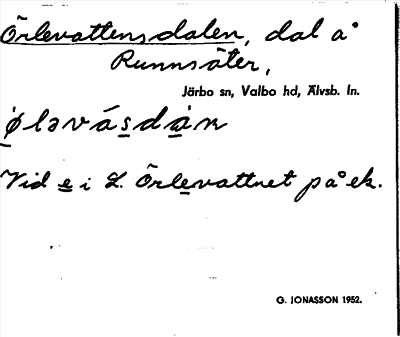 Örlevattensdalen, dal å
Runnsäter,
Järbo sn, Valbo hd, Älvsb. ln.
øləvásdàn
Vid e i L. Örlevattnet på ek.
G. JONASSON 1952.